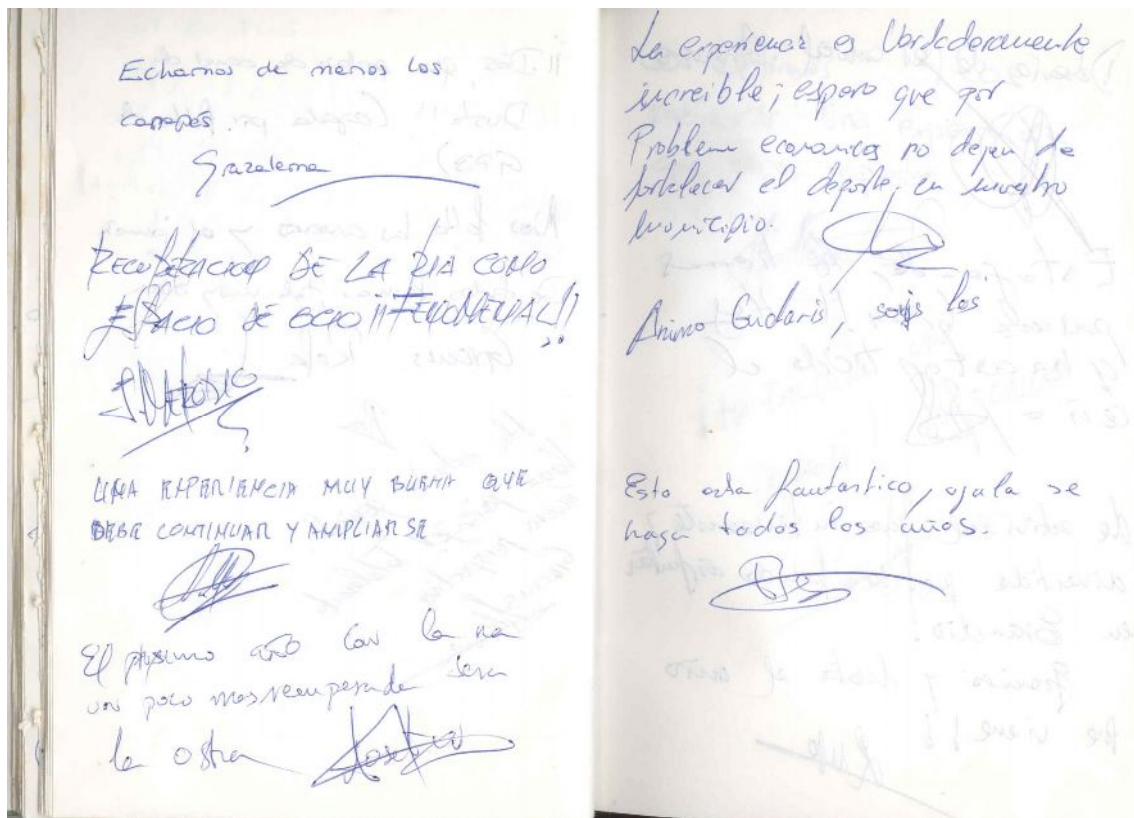 Echamos de menos los
canapés.
Grazalema
RECUPERACION DE LA RIA COMO
ESPACIO DE OCIO ¡¡FENOMENAL!!
UNA EXPERIENCIA MUY BUENA QUE
DEBE CONTINUAR Y AMPLIARSE
El proximo año con la ria
un poco mas recuperada sera
la ostra
La experiencia es Verdaderamente
increible; espero que por
Problema economicos no dejen de
fortalecer el deporte, en nuestro
municipio.
Animo Gudaris, sois los
Esto esta fantastico, ojala se
haga todos los años.